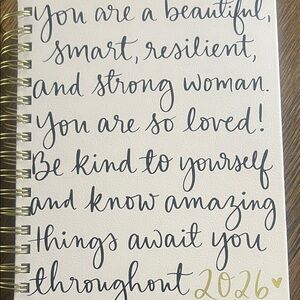 You are a beautiful,
smart, resilient,
and strong woman.
You are so loved!
Be kind to yourself
and know amazing
things await you
throughout 2026